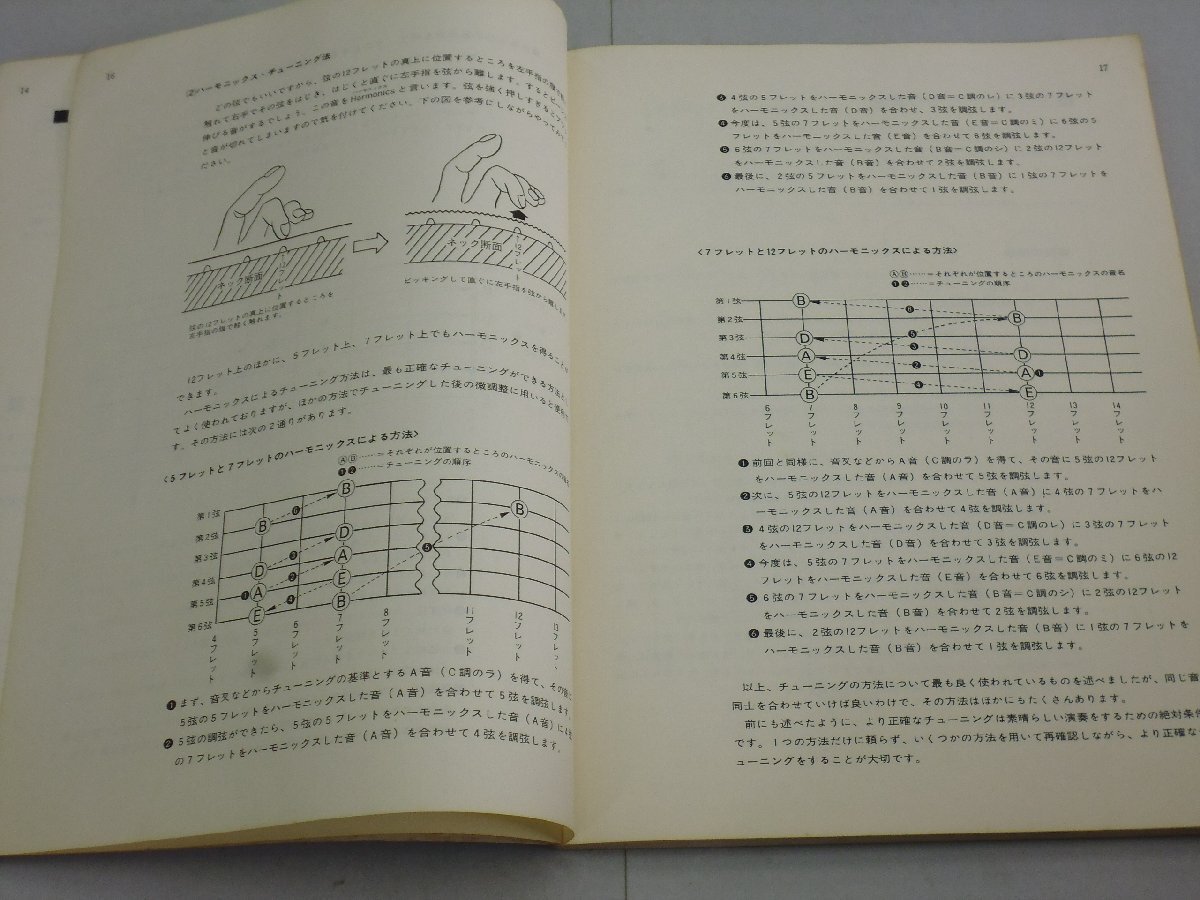 14
16
②ハーモニックス・チューニング法
どの弦でもいいですから、弦の12フレットの真上に位置するところを左手指の
触れて右手でその弦をはじき、はじくと直ぐに左手指を弦から離します。すると
伸びる音がするでしょう。この音をHarmonicsと言います。弦を強く押しすぎる
と音が切れてしまいますので気を付けてください。下の図を参考にしながらやって
ださい。
ネック断面
12フレット
ネック断面
12フレット
弦の12フレットの真上に位置するところを
左手指の頭で軽く触れます。
ピッキングして直ぐに左手指を弦から離します
12フレット上のほかに、5フレット上、7フレット上でもハーモニックスを得ること
できます。
ハーモニックスによるチューニング方法は、最も正確なチューニングができる方法と
てよく使われておりますが、ほかの方法でチューニングした後の微調整に用いると
す。その方法には次の2通りがあります。
〈5フレットと7フレットのハーモニックスによる方法〉
ⒶⒹ……＝それぞれが位置するところのハーモニックスの
❶❷……＝チューニングの順序
第1弦
第2弦
第3弦
第4弦
第5弦
第6弦
B
B
D
D
A
A
E
E
B
B
❶
❷
❸
❹
❺
❻
4フレット
5フレット
6フレット
7フレット
8フレット
11フレット
12フレット
13フレット
❶まず、音叉などからチューニングの基準とするA音（C調のラ）を得て、その
5弦の5フレットをハーモニックスした音（A音）を合わせて5弦を調弦します。
❷5弦の調弦ができたら、5弦の5フレットをハーモニックスした音（A音）に4
の7フレットをハーモニックスした音（A音）を合わせて4弦を調弦します。
17
❸4弦の5フレットをハーモニックスした音（D音＝C調のレ）に3弦の7フレット
をハーモニックスした音（D音）を合わせ、3弦を調弦します。
❹今度は、5弦の7フレットをハーモニックスした音（E音＝C調のミ）に6弦の5
フレットをハーモニックスした音（E音）を合わせて6弦を調弦します。
❺6弦の7フレットをハーモニックスした音（B音＝C調のシ）に2弦の12フレット
をハーモニックスした音（B音）を合わせて2弦を調弦します。
❻最後に、2弦の5フレットをハーモニックスした音（B音）に1弦の7フレットを
ハーモニックスした音（B音）を合わせて1弦を調弦します。
〈7フレットと12フレットのハーモニックスによる方法〉
ⒶⒹ……＝それぞれが位置するところのハーモニックスの音名
❶❷……＝チューニングの順序
第1弦
第2弦
第3弦
第4弦
第5弦
第6弦
B
B
D
A
D
E
A
B
E
❻
❺
❸
❷
❶
❹
6フレット
7フレット
8フレット
9フレット
10フレット
11フレット
12フレット
13フレット
14フレット
❶前回と同様に、音叉などからA音（C調のラ）を得て、その音に5弦の12フレット
をハーモニックスした音（A音）を合わせて5弦を調弦します。
❷次に、5弦の12フレットをハーモニックスした音（A音）に4弦の7フレットをハ
ーモニックスした音（A音）を合わせて4弦を調弦します。
❸4弦の12フレットをハーモニックスした音（D音＝C調のレ）に3弦の7フレット
をハーモニックスした音（D音）を合わせて3弦を調弦します。
❹今度は、5弦の7フレットをハーモニックスした音（E音＝C調のミ）に6弦の12
フレットをハーモニックスした音（E音）を合わせて6弦を調弦します。
❺6弦の7フレットをハーモニックスした音（B音＝C調のシ）に2弦の12フレット
をハーモニックスした音（B音）を合わせて2弦を調弦します。
❻最後に、2弦の12フレットをハーモニックスした音（B音）に1弦の7フレットを
ハーモニックスした音（B音）を合わせて1弦を調弦します。
以上、チューニングの方法について最も良く使われているものを述べましたが、同じ音
同士を合わせていけば良いわけで、その方法はほかにもたくさんあります。
前にも述べたように、より正確なチューニングは素晴らしい演奏をするための絶対条件
です。1つの方法だけに頼らず、いくつかの方法を用いて再確認しながら、より正確な
ューニングをすることが大切です。